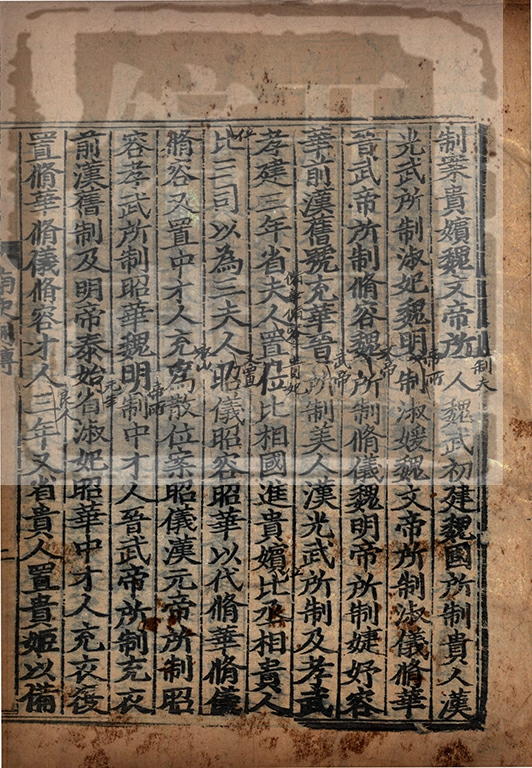 制案貴嬪魏文帝所人魏武初建魏國所制貴人漢
制夫
光武所制淑妃魏明制淑媛魏文帝所制淑儀脩華
帝所
晉武帝所制脩容魏所制脩儀魏明帝所制婕妤容
文帝
華前漢舊號充華晉所制美人漢光武所制及孝武
武帝
孝建三年省夫人置位比相國進貴嬪比丞相貴人
貴妃
比三司以為三夫人昭儀昭容昭華以代脩華脩儀
脩容又置中才人充爲散位案昭儀漢元帝所制昭
容孝武所制昭華魏明制中才人晉武帝所制充衣
帝所
前漢舊制及明帝泰始省淑妃昭華中才人充衣復
元年
置脩華脩儀脩容才人三年又省貴人置貴姬以備
良人
二